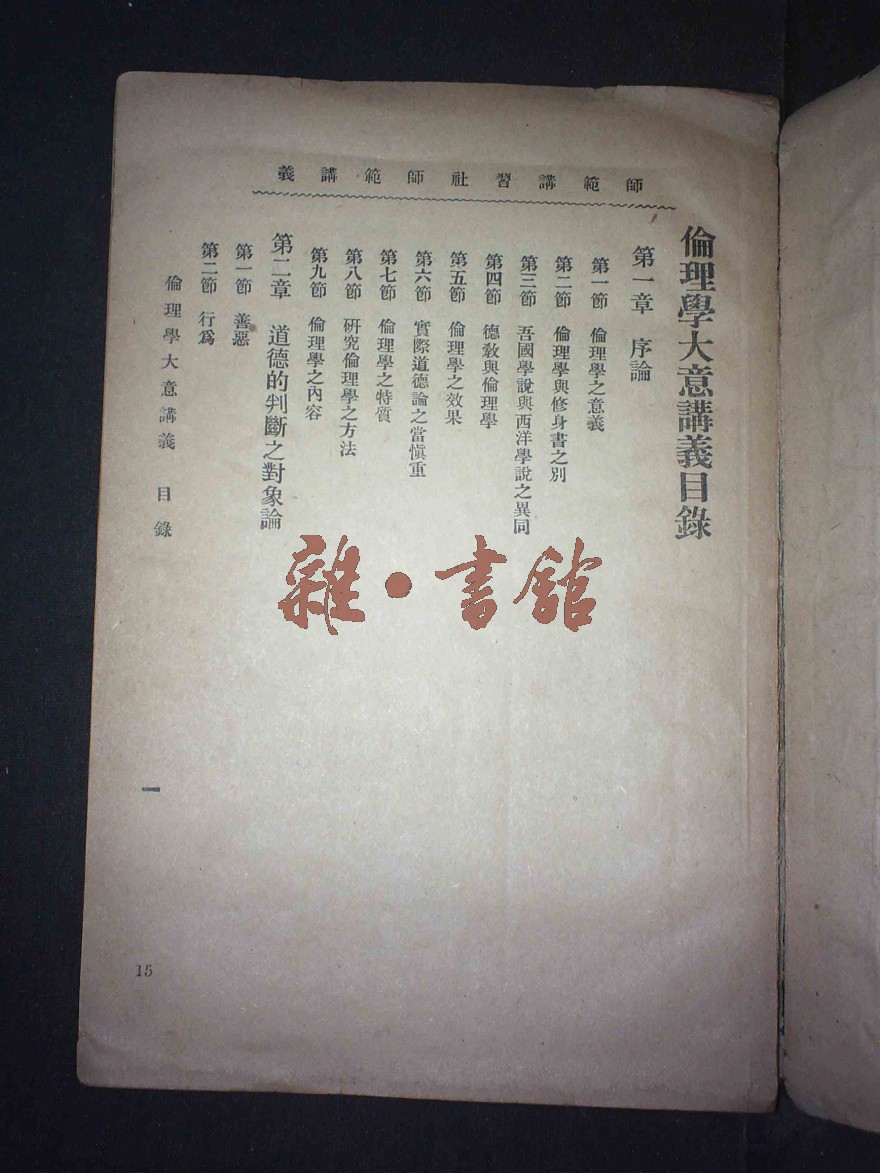 師範講習社師範講義
倫理學大意講義目錄
第一章 序論
第一節 倫理學之意義
第二節 倫理學與修身書之別
第三節 吾國學說與西洋學說之異同
第四節 德敎與倫理學
第五節 倫理學之效果
第六節 實際道德論之當愼重
第七節 倫理學之特質
第八節 硏究倫理學之方法
第九節 倫理學之內容
第二章 道德的判斷之對象論
第一節 善惡
第二節 行爲
倫理學大意講義 目錄
一
15
雜·書館